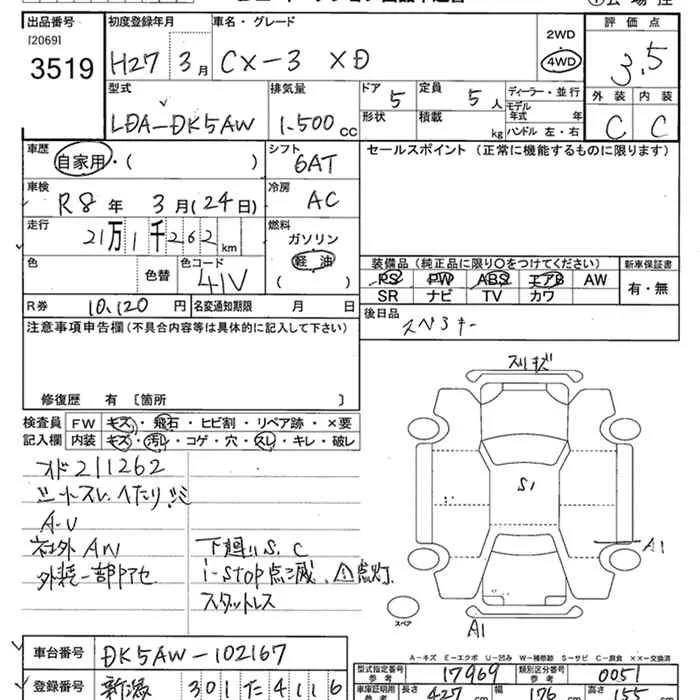 出品番号 初度登録年月 車名・グレード 評価点
[2069] 2WD
3519 H27 3月 CX-3 XD 4WD 3.5
型式 排気量 ドア 5 定員 5人 ディーラー・並行 外装 内装
モデル年式 年
LDA-DK5AW 1.500cc 形状 積載 kg ハンドル 左・右 C C
車歴 自家用・( ) シフト 6AT セールスポイント (正常に機能するものに限ります)
車検 R8年 3月(24日) 冷房 AC
走行 21万1千262km 燃料 ガソリン
軽油
( )
色 色替 色コード 41V 装備品(純正品に限り○をつけてください) 新車保証書
PS PW ABS エアB AW 有・無
SR ナビ TV カワ
R券 10,120円 名変通知期限 月 日 後日品 スペアキー
注意事項申告欄(不具合内容等は具体的に記入して下さい)
スリキズ
修復歴 有 [箇所 ]
検査員 FW キズ・飛石・ヒビ割・リペア跡・×要
記入欄 内装 キズ・汚レ・コゲ・穴・スレ・キレ・破レ
オド211262
シートスレ、ヘたり、シミ
S1
A-U
社外AW 下廻りS、C A1
外装一部アセ i-stop点滅、⚠点灯
スタットレス
スペア
A1
A-キズ E-エクボ U-凹み W-補修跡 S-サビ C-腐食 XX-交換済
車台番号 DK5AW-102167 型式指定番号 参考 17969 類別区分番号 参考 0051
登録番号 新潟 301 た 4116 車庫証明用 参考 長さ 427 cm 幅 176 cm 高さ 155 cm